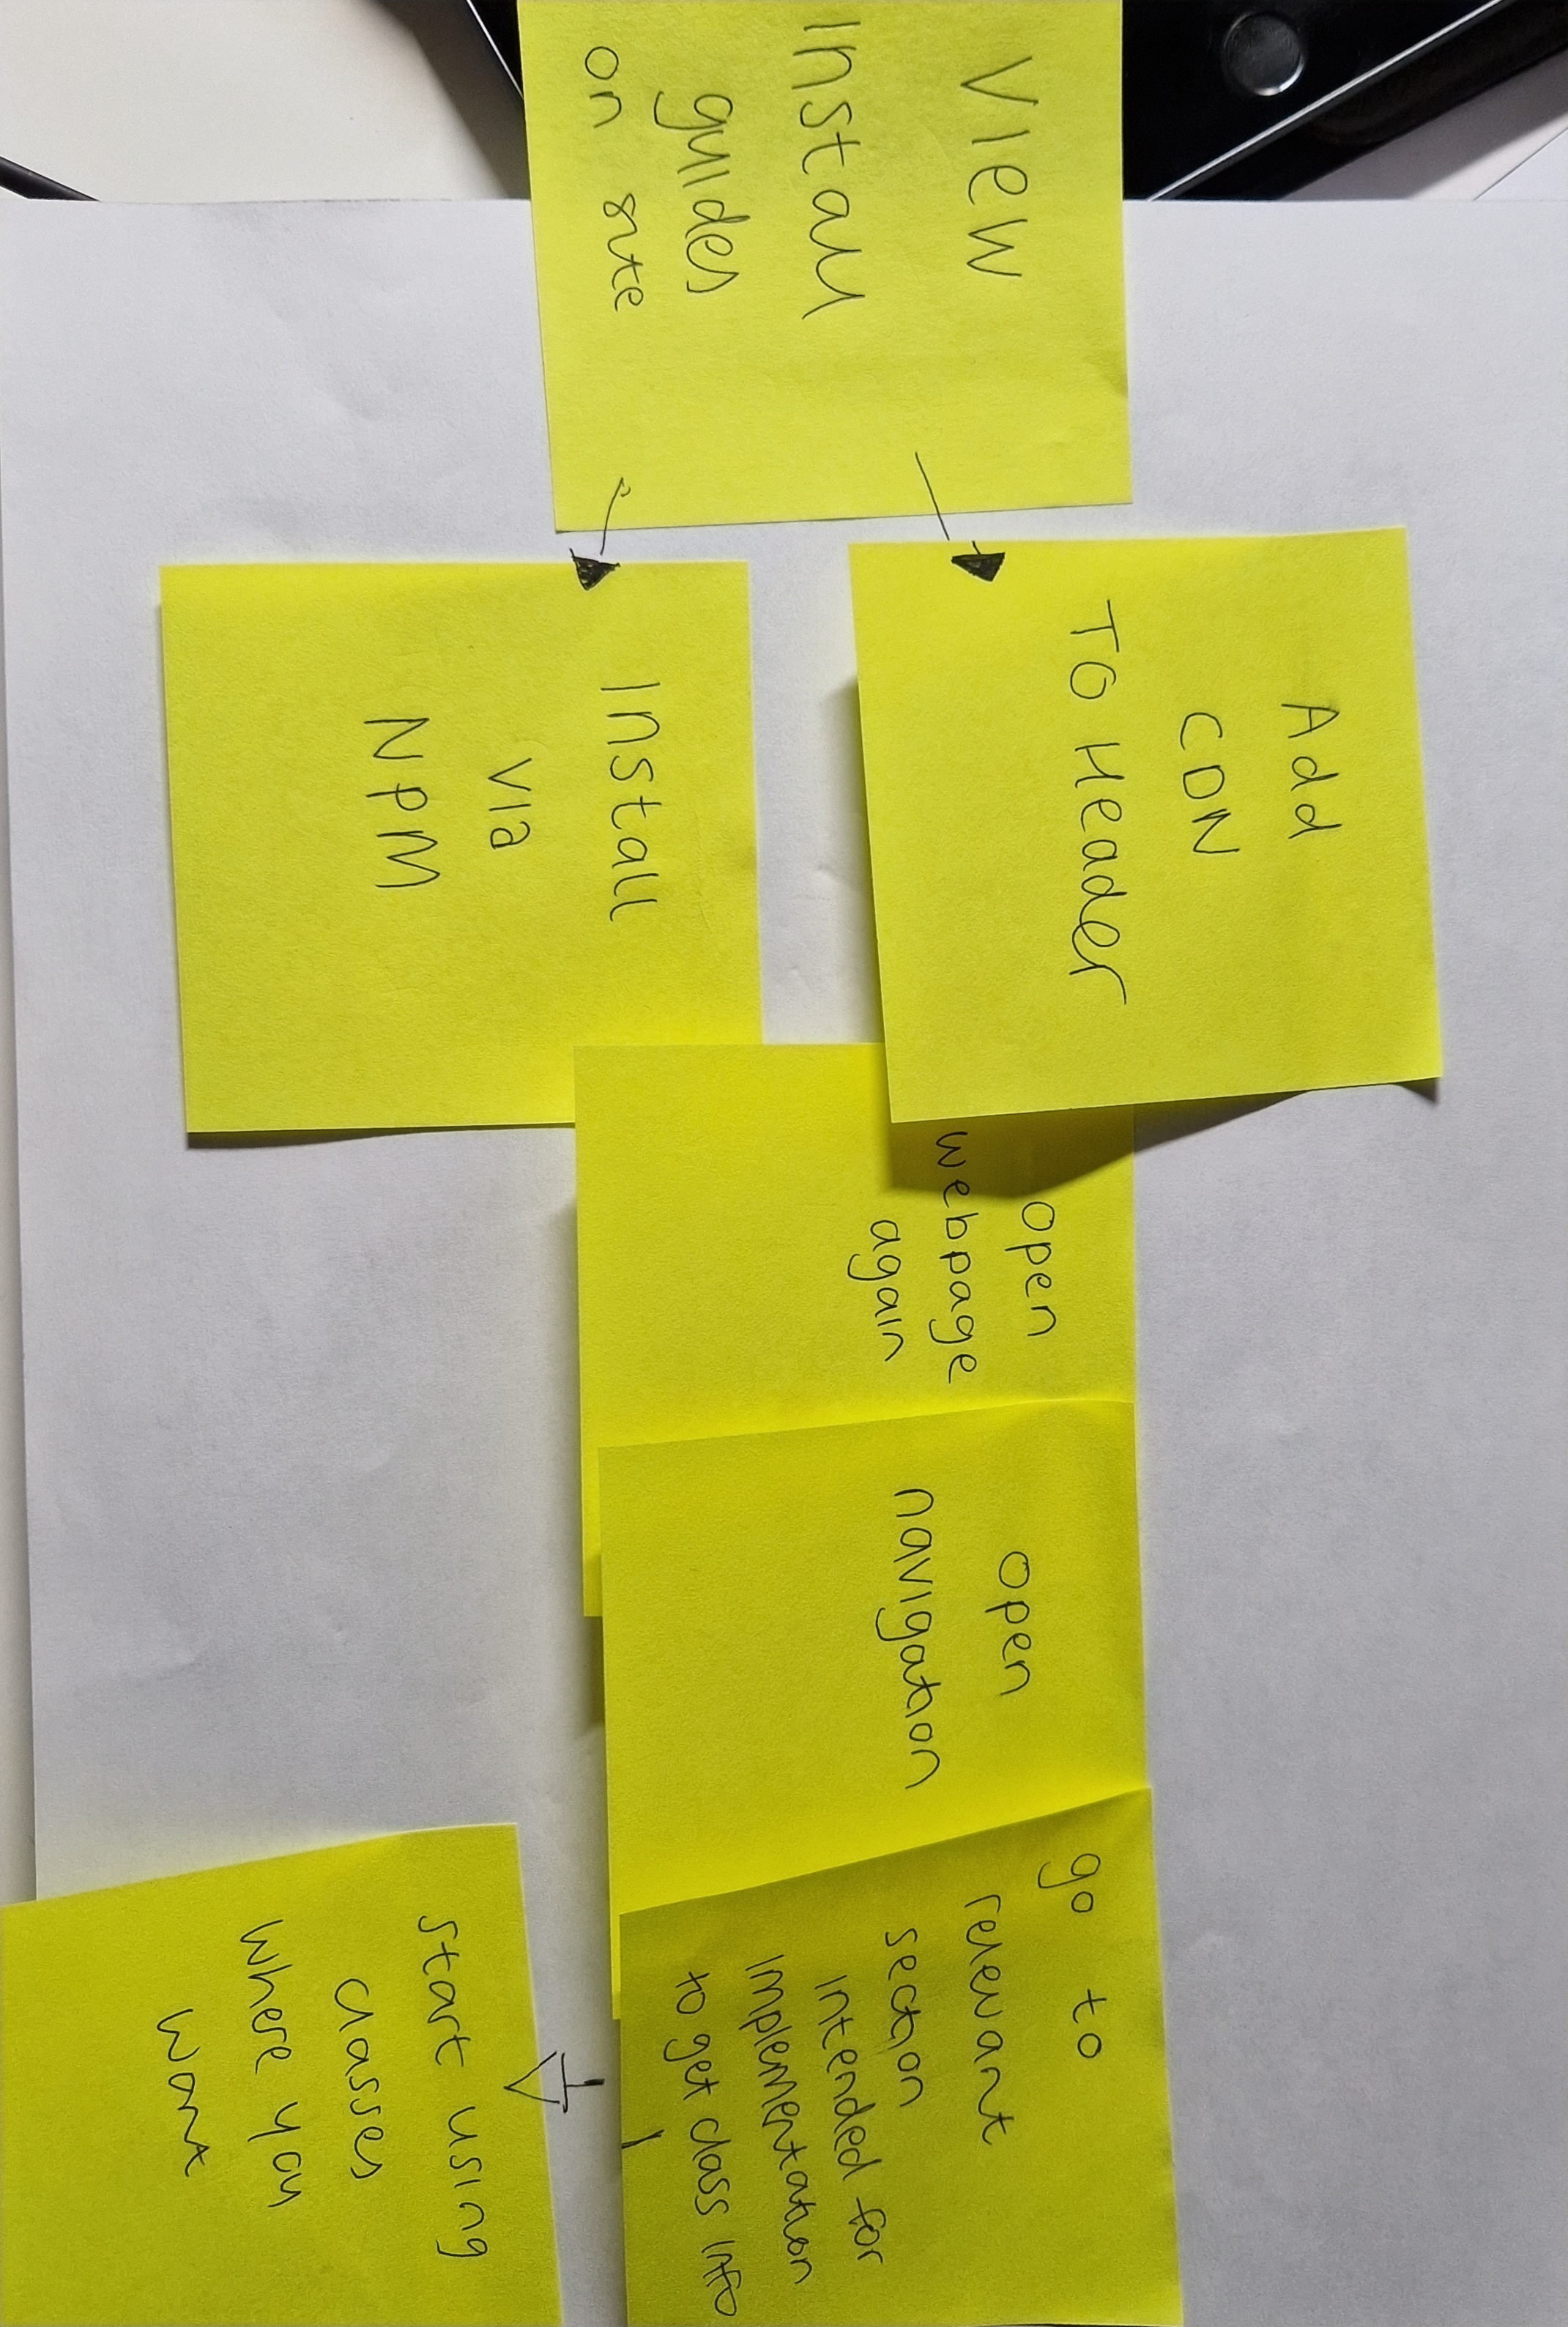 View
Install
guides
on site
Add
CDN
TO Header
Install
via
NPM
open
webpage
again
open
navigation
go to
relevant
section
intended for
implementation
to get class info
start using
classes
where you
want